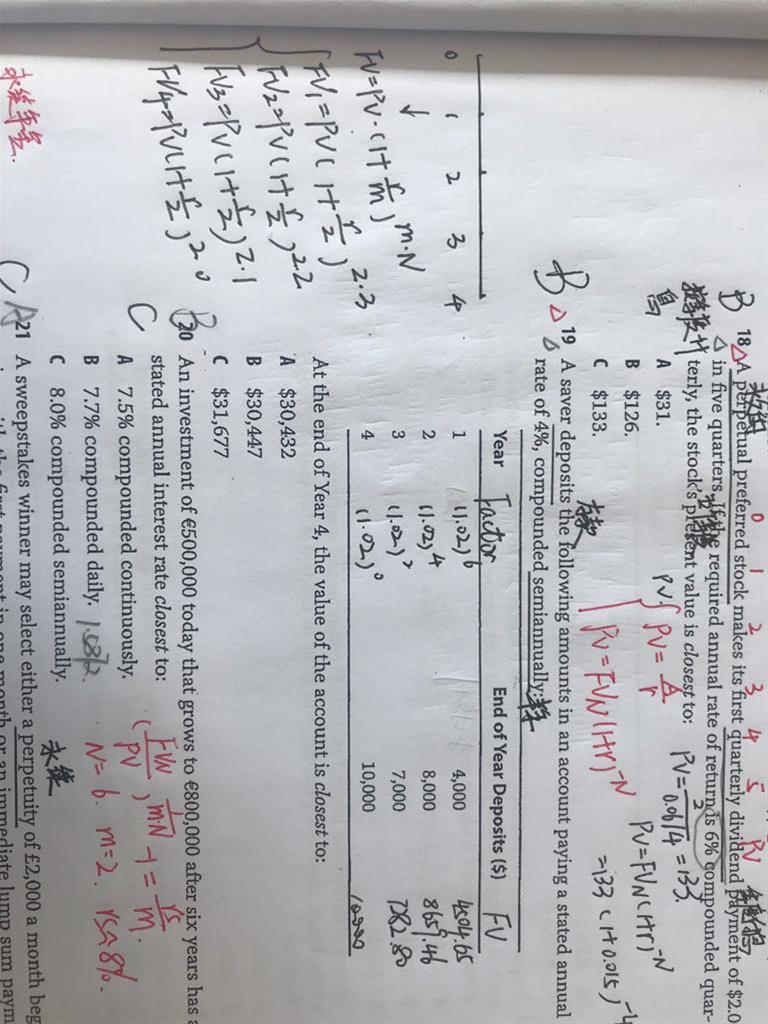 永续 0 1 2 3 4 5 PV
B 18 △ A perpetual preferred stock makes its first quarterly dividend payment of $2.0
△ in five quarters. If the required annual rate of return is 6% compounded quar-
terly, the stock's present value is closest to:
A $31.
B $126.
C $133.
PV. { PV = A/r PV = 2/(0.06/4) = 133.
PV = FVN(1+r)^-N PV = FVN(1+r)^-N
=133 (1+0.015)^-4
B △ 19 A saver deposits the following amounts in an account paying a stated annual
△ rate of 4%, compounded semiannually: 半年
Year Factor End of Year Deposits ($) FV
1 (1.02)^6 4,000 4504.65
2 (1.02)^4 8,000 8659.46
3 (1.02)^2 7,000 7282.80
4 (1.02)^0 10,000 10000
At the end of Year 4, the value of the account is closest to:
A $30,432
B $30,447
C $31,677
0 1 2 3 4
FV = PV·(1+r/m)^m·N
↓
FV1 = PV(1+r/2)^2·3
FV2 = PV(1+r/2)^2·2
FV3 = PV(1+r/2)^2·1
FV4 = PV(1+r/2)^2·0
B 20 An investment of €500,000 today that grows to €800,000 after six years has a
C stated annual interest rate closest to:
A 7.5% compounded continuously.
B 7.7% compounded daily.
C 8.0% compounded semiannually.
(FVN/PV)^1/mN - 1 = rs/m.
N=6. m=2. rs≈8%.
永续年金.
永续
C A 21 A sweepstakes winner may select either a perpetuity of £2,000 a month beg